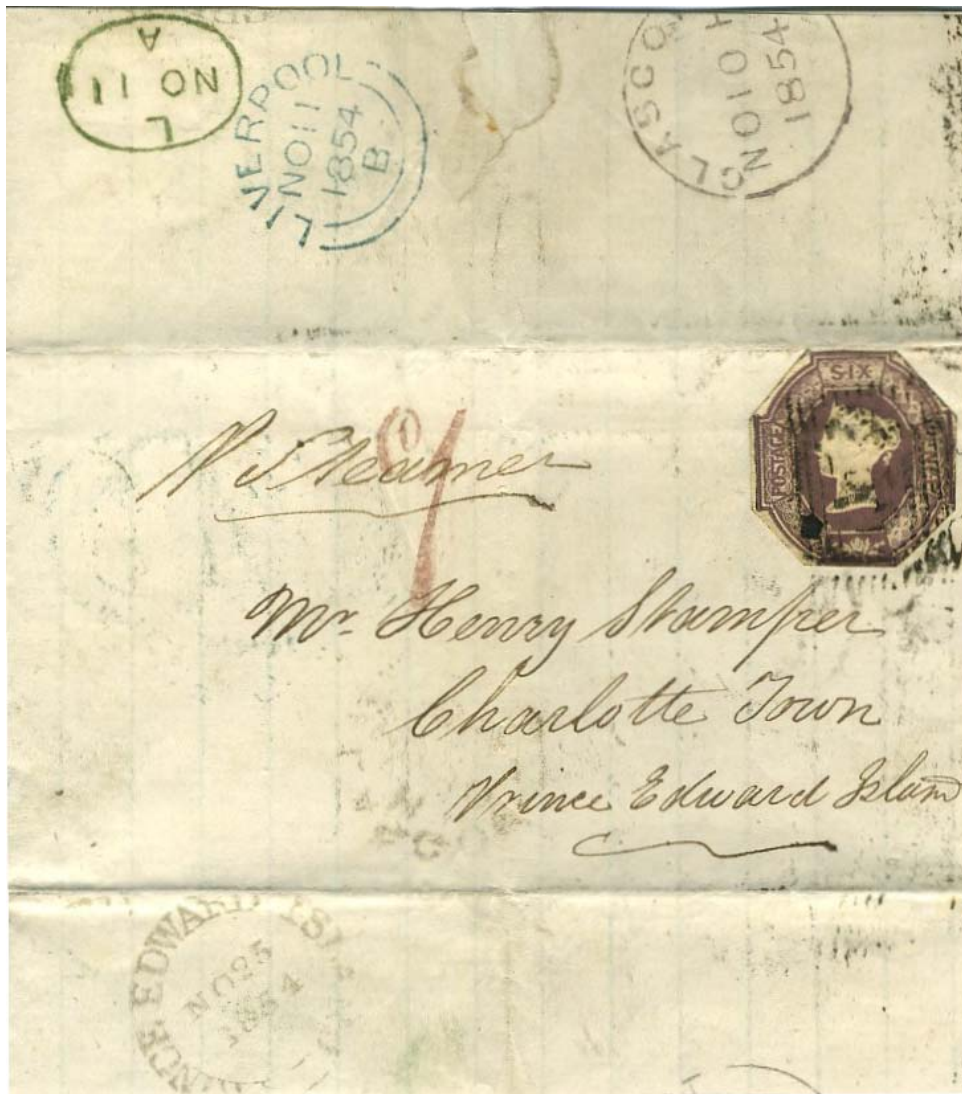 L
NO 11
A
LIVERPOOL
NO 11
1854
B
GLASGO
NO 10 H
1854
SIX
POSTAGE
PENCE
1
P Steamer
Mr. Henry Stamper
Charlotte Town
Prince Edward Island
PRINCE EDWARD ISL
NO 25
1854